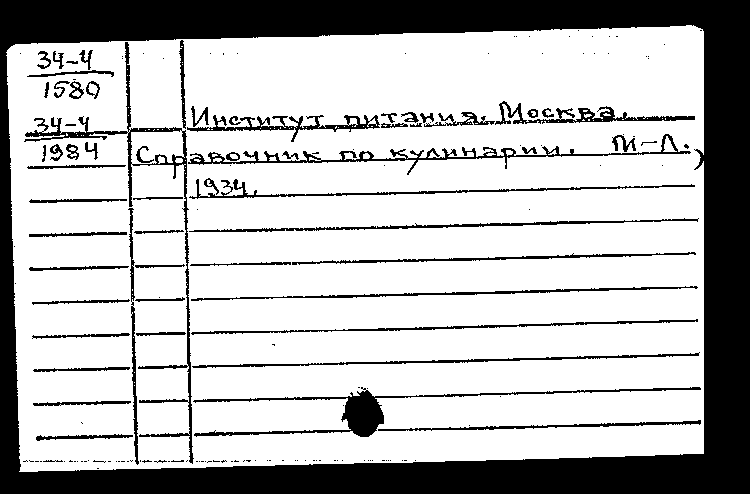 34-4
1580
34-4
1984
Институт питания. Москва.
Справочник по кулинарии. М-Л.,
1934.